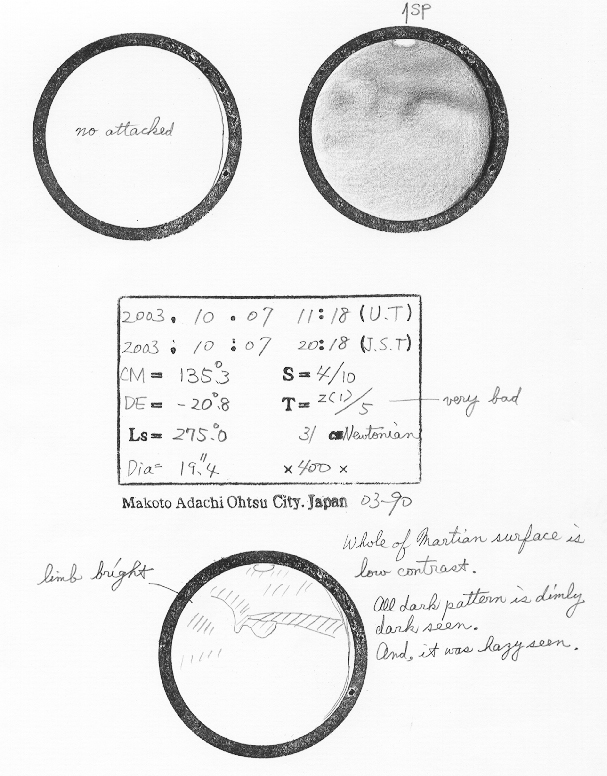 ↑SP
no attacked
2003. 10. 07 11:18 (U.T)
2003: 10: 07 20:18 (J.S.T)
CM = 135°.3 S = 4/10
DE = -20°.8 T = 2(1)/5 very bad
Ls = 275°.0 31 cm Newtonian
Dia = 19".4 ×400 ×
Makoto Adachi Ohtsu City. Japan 03-90
Whole of Martian surface is
low contrast.
limb bright
All dark pattern is dimly
dark seen.
And, it was hazy seen.